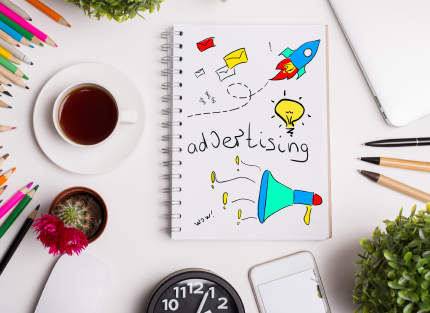 !
$ $ $
$ $
advertising
! ! ! ! !
wow!
10 11 12 1 2